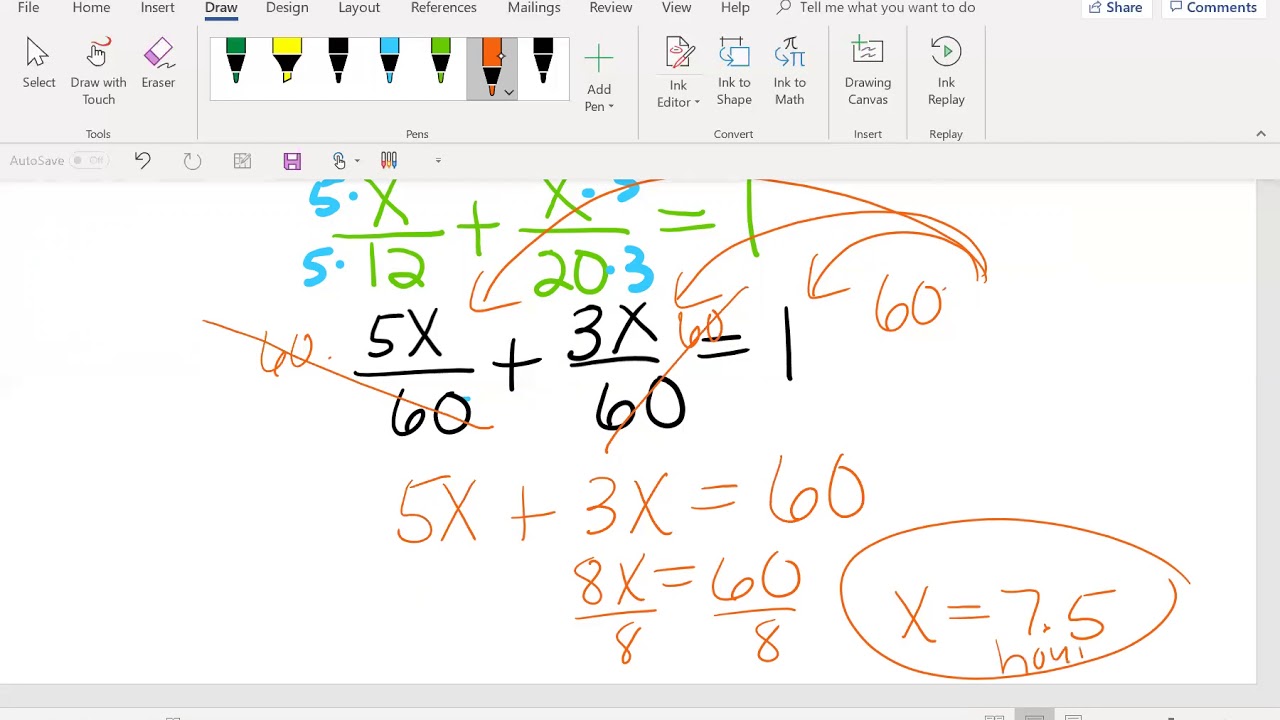 File Home Insert Draw Design Layout References Mailings Review View Help Tell me what you want to do Share Comments
Select Draw with Touch Eraser Add Pen Ink Editor Ink to Shape Ink to Math Drawing Canvas Ink Replay
Tools Pens Convert Insert Replay
AutoSave Off
5· X / 5· 12 + X ·3 / 20 ·3 = 1
60· 5X / 60 + 3X / 60 60 = 1 60·
5X + 3X = 60
8X / 8 = 60 / 8
X = 7.5
hour